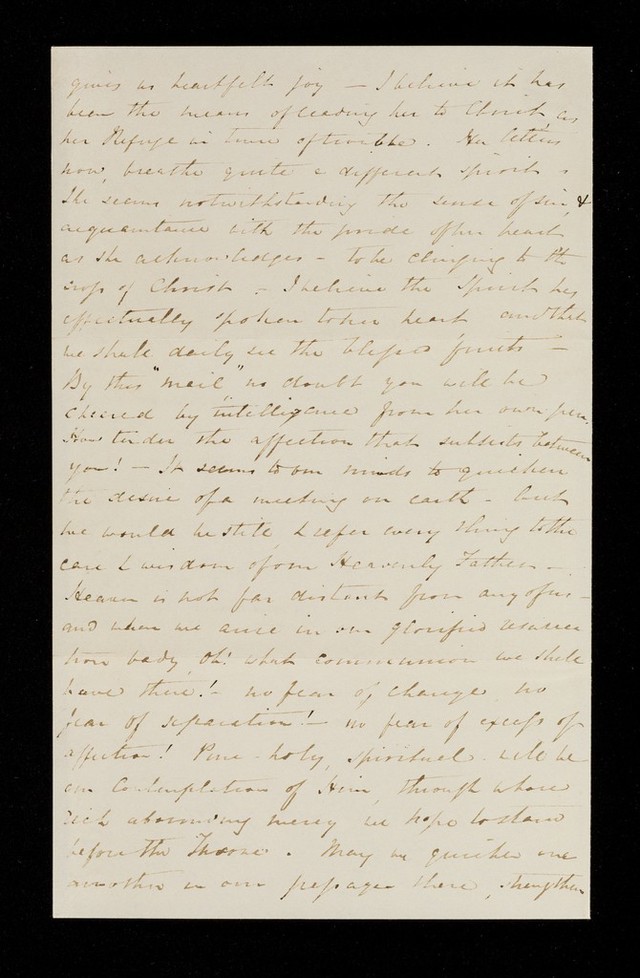 gives us heartfelt joy — I believe it has
been the means of leading her to Christ, as
her Refuge in time of trouble. Her letters
now, breathe quite a different spirit.
She seems notwithstanding the sense of sin, &
acquaintance with the pride of her heart
as she acknowledges – to be clinging to the
cross of Christ – I believe the Spirit has
effectually spoken to her heart and that
we shall daily see the blessed fruits –
By this "mail" no doubt you will be
cheered by intelligence from her own pen.
How tender the affection that subsists between
you! – It seems to our minds to quicken
the desire of a meeting on earth – but
we would be still, & refer every thing to the
care & wisdom of our Heavenly Father –
Heaven is not far distant from any of us –
and when we arise in our glorified resurrec
tion body, Oh! what communion we shall
have there! – no fear of change no
fear of separation! – no fear of excess of
affection! Pure – holy, spiritual will be
our Contemplation of Him, through whose
rich abounding mercy we hope to stand
before the Throne. May we quicken one
another in our passage there, strengthen